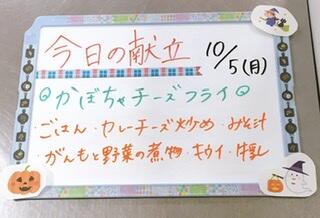 今日の献立 10/5(月)
かぼちゃチーズフライ
・ごはん・カレーチーズ炒め・みそ汁
・がんもと野菜の煮物・キウイ・牛乳